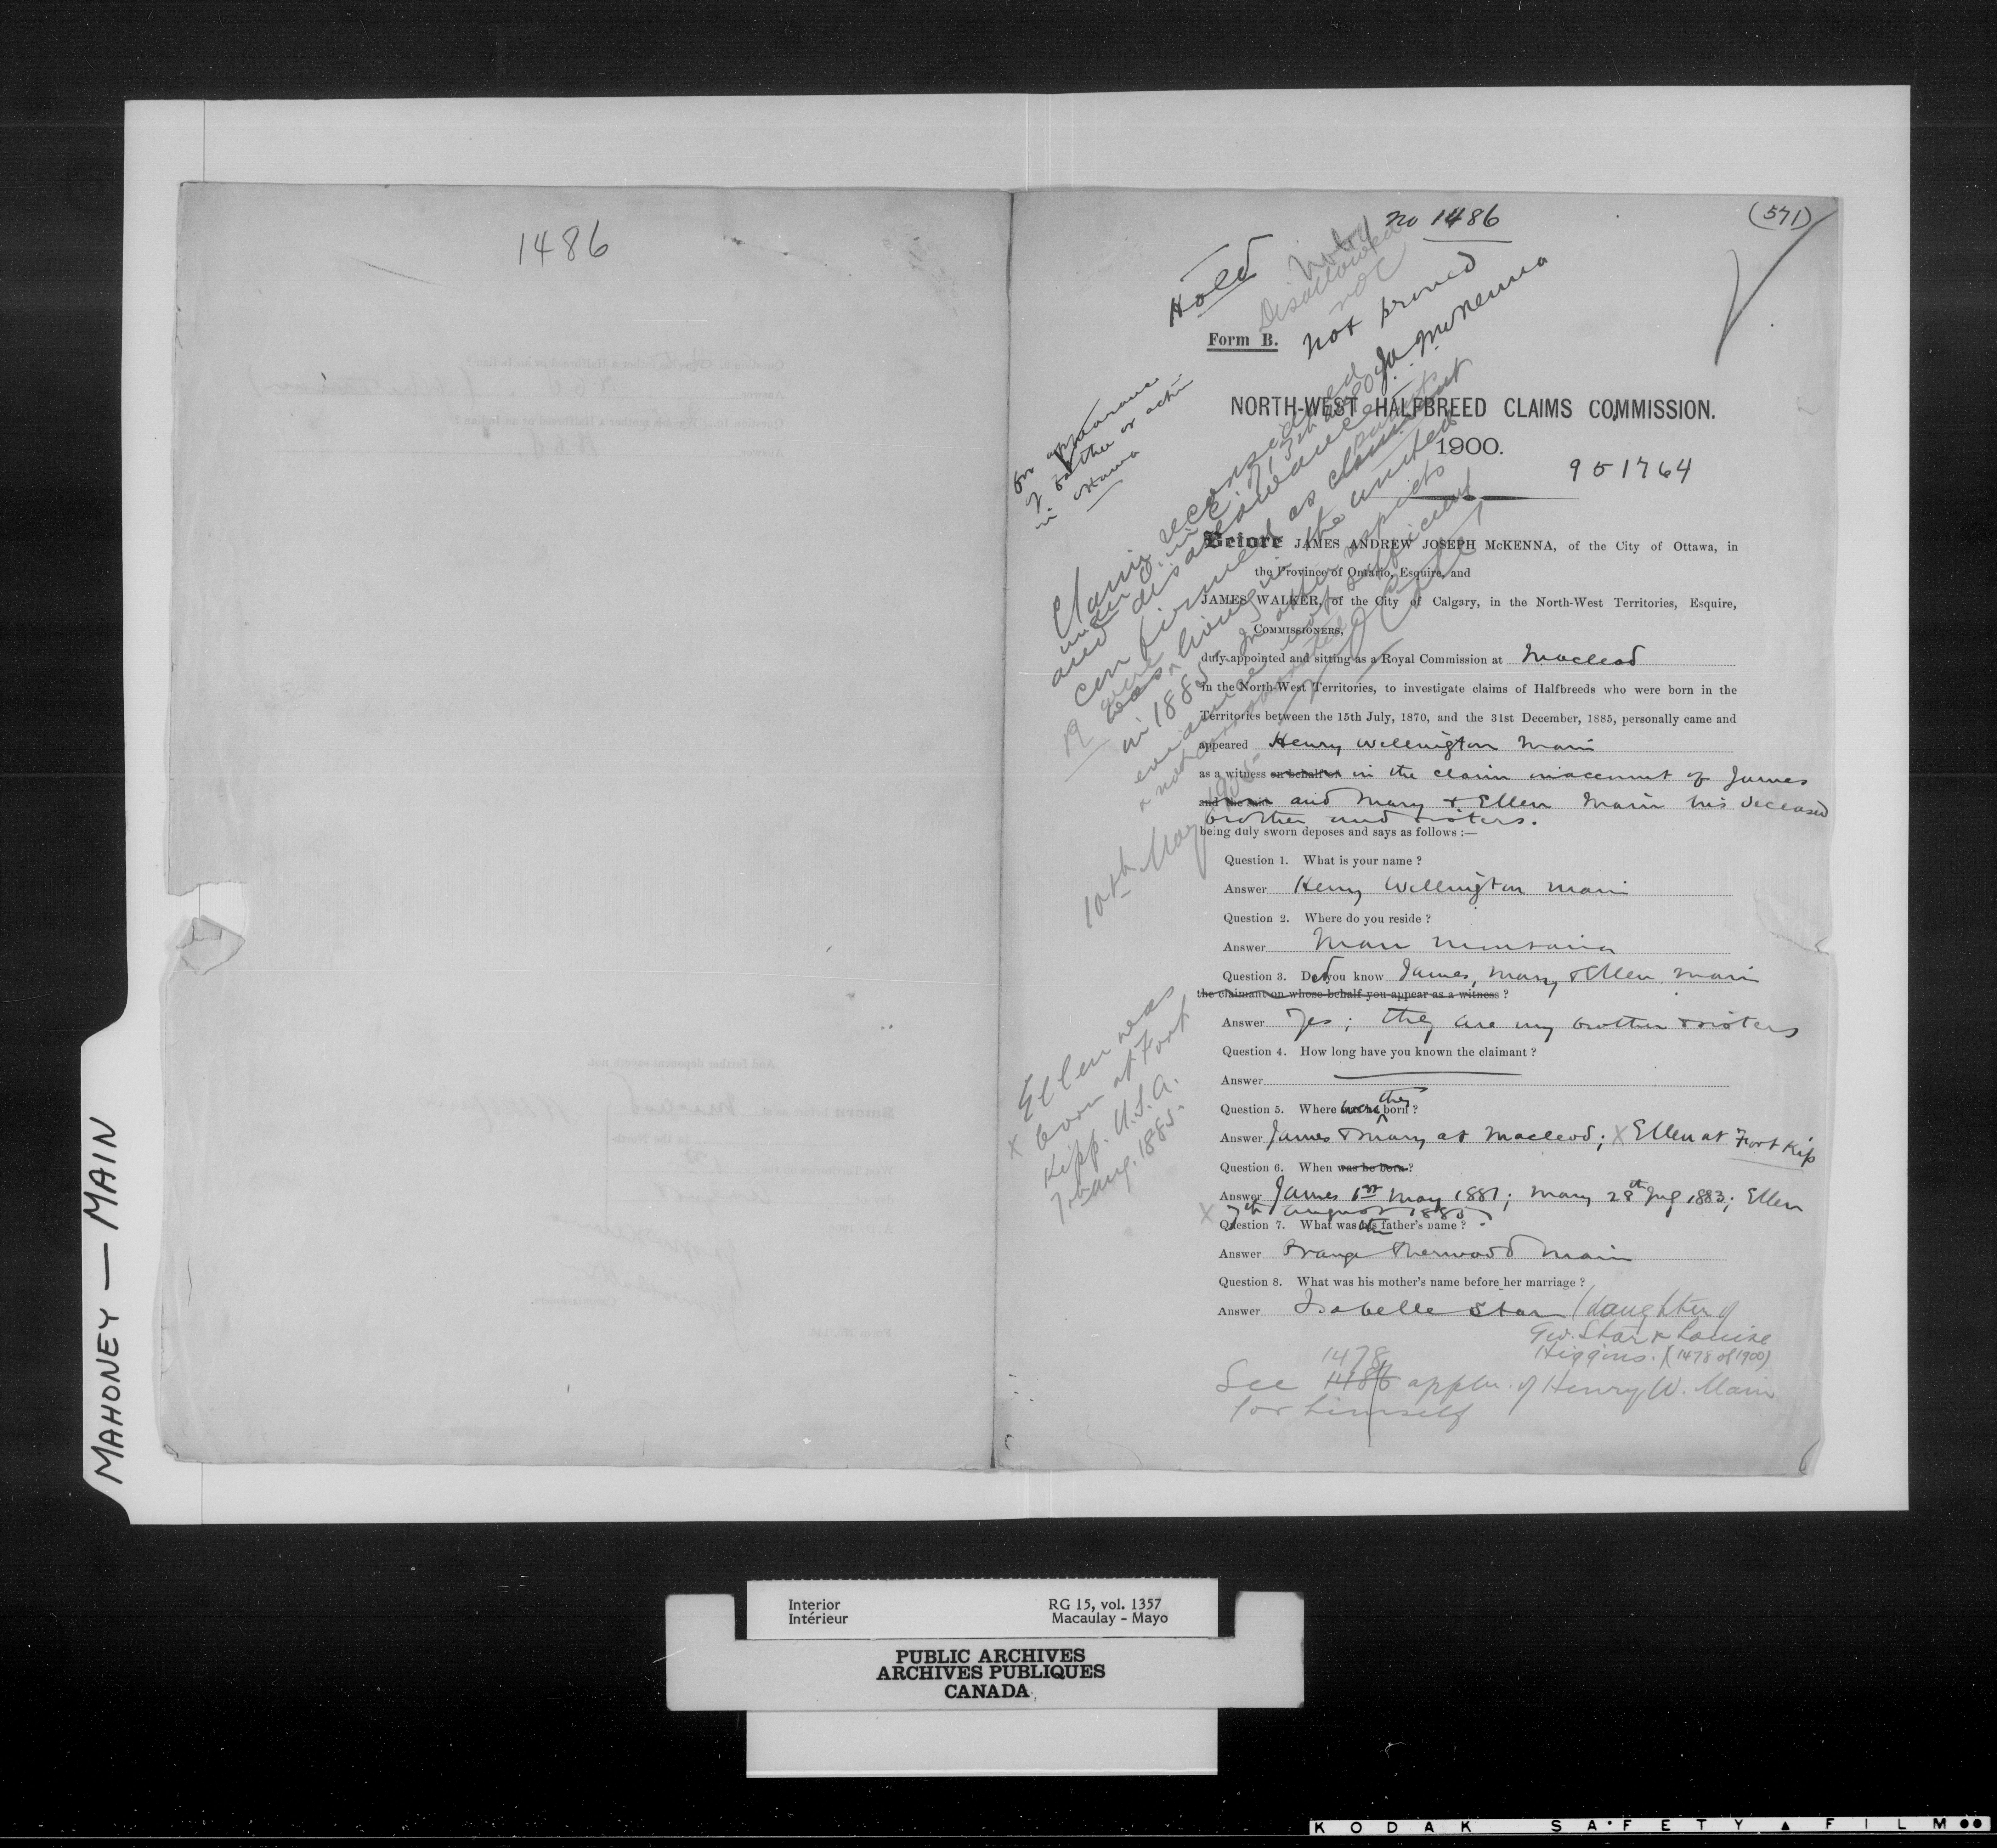 1486
no 1486
(571)
Hold
Disallowed
not proved
JA McKenna
Form B.
for appearance
of father or
in Ottawa
NORTH-WEST HALFBREED CLAIMS COMMISSION.
1900.
951764
Claim reconsidered
under O. in C. of 13th
and disallowance
confirmed as claimant
parents
were
was living in the United
in 1885. In other respects
evidence not sufficient
& not corroborated
10th May 1905.
Before JAMES ANDREW JOSEPH McKENNA, of the City of Ottawa, in
the Province of Ontario, Esquire, and
JAMES WALKER, of the City of Calgary, in the North-West Territories, Esquire,
COMMISSIONERS,
duly appointed and sitting as a Royal Commission at Macleod
in the North-West Territories, to investigate claims of Halfbreeds who were born in the
Territories between the 15th July, 1870, and the 31st December, 1885, personally came and
appeared Henry Wellington Main
as a witness on behalf of in the claim in account of James
and Mary & Ellen Main his deceased
brother and sisters.
being duly sworn deposes and says as follows :—
Question 1. What is your name ?
Answer Henry Wellington Main
Question 2. Where do you reside ?
Answer Montana
Question 3. Did you know James, Mary & Ellen Main
the claimant on whose behalf you appear as a witness ?
Answer Yes; they are my brother & sisters
Question 4. How long have you known the claimant ?
Answer
Question 5. Where were they born ?
Answer James & Mary at Macleod; X Ellen at Fort Kip
Question 6. When was he born ?
Answer James 1st May 1881; Mary 28th July 1883; Ellen
X 7th August 1885.
Question 7. What was his father's name ?
Answer Orange Sherwood Main
Question 8. What was his mother's name before her marriage ?
Answer Isabelle Star (daughter of
Geo. Star & Louise
Higgins. (1478 of 1900)
1478
See 1486 appln. of Henry W. Main
for himself
Ellen was
X born at Fort
Kipp. U.S.A.
7. Aug. 1885.
MAHONEY — MAIN
Interior
Intérieur
RG 15, vol. 1357
Macaulay - Mayo
PUBLIC ARCHIVES
ARCHIVES PUBLIQUES
CANADA
KODAK SAFETY FILM